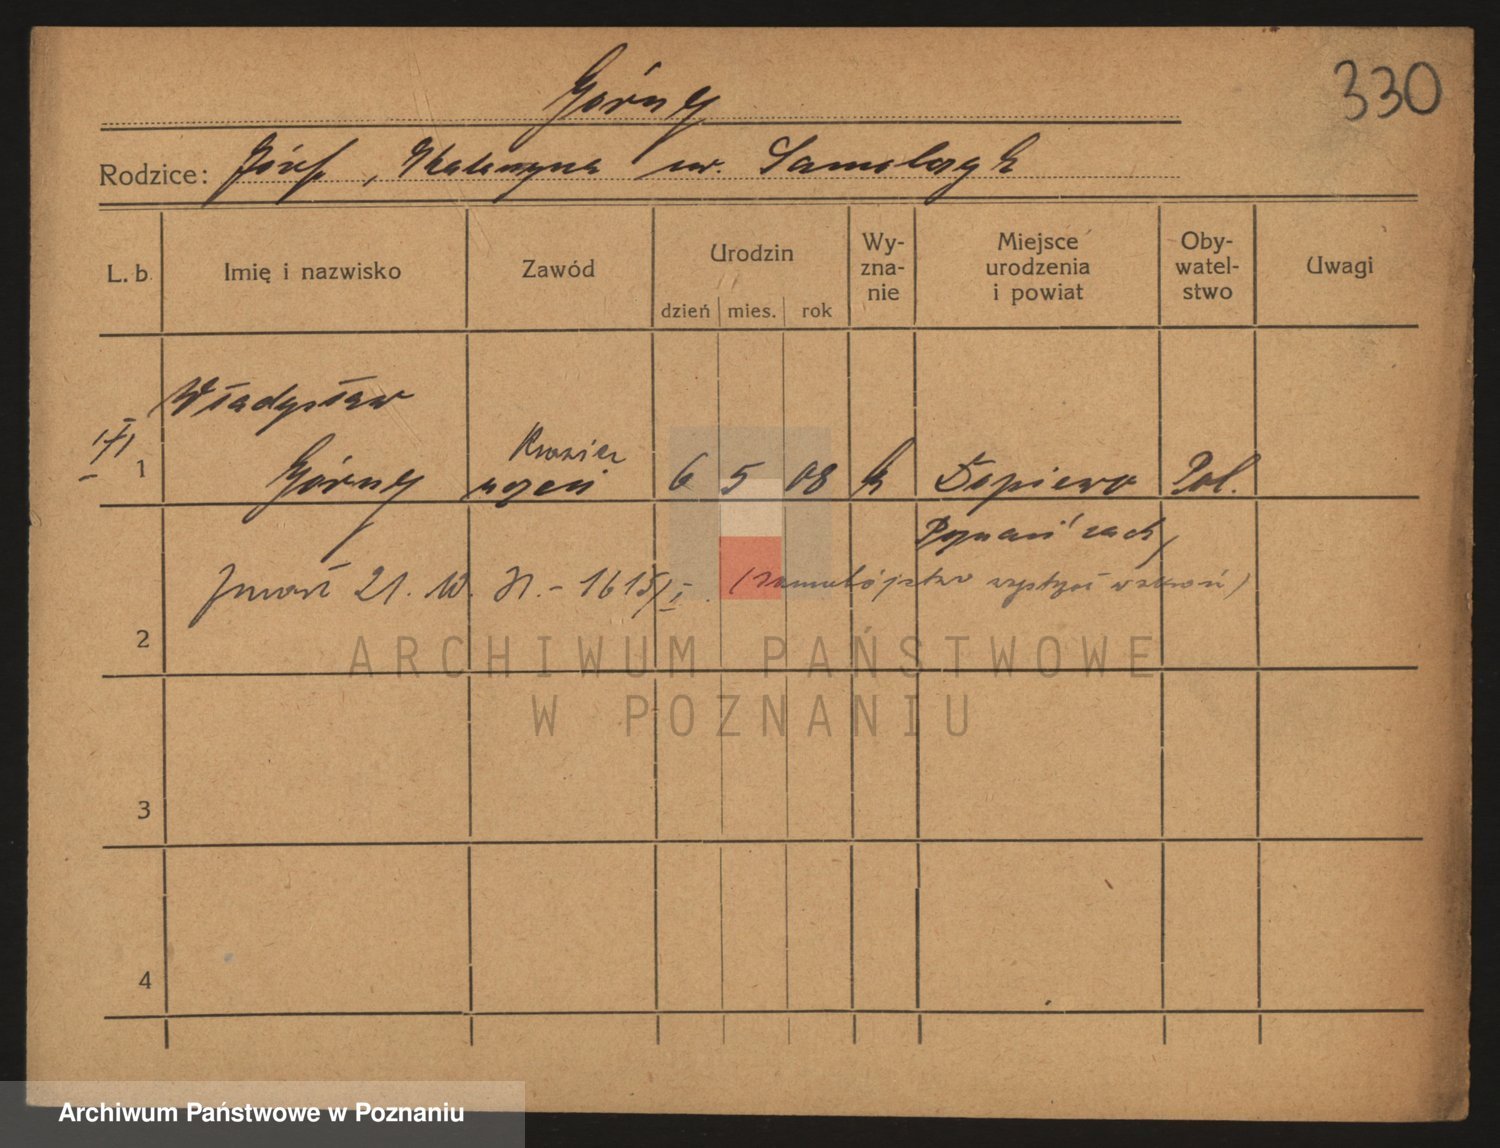 330
Górny
Rodzice: Józef, Katarzyna ur. Samolczyk
L. b. Imię i nazwisko Zawód Urodzin Wy-zna-nie Miejsce urodzenia i powiat Oby-watel-stwo Uwagi
dzień mies. rok
Władysław
Krawiec
1 Górny uczeń 6 5 08 k Dopiewo Pol.
Poznań zach
Zmarł 21. 10. 31. – 1615/I. (samobójstwo
2
3
4
ARCHIWUM PAŃSTWOWE
W POZNANIU
Archiwum Państwowe w Poznaniu